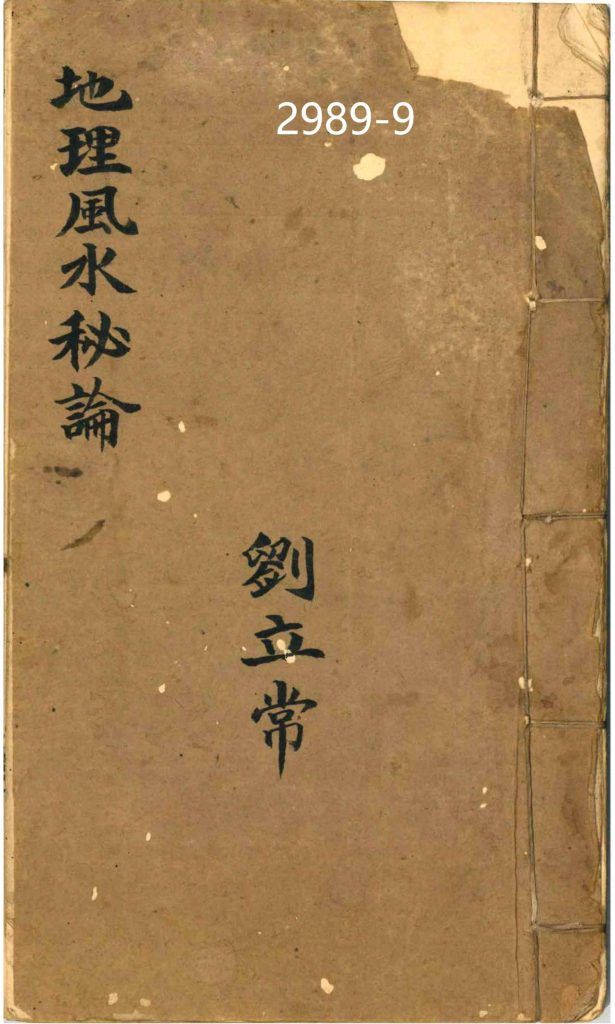 2989-9
地理風水秘論
劉立常